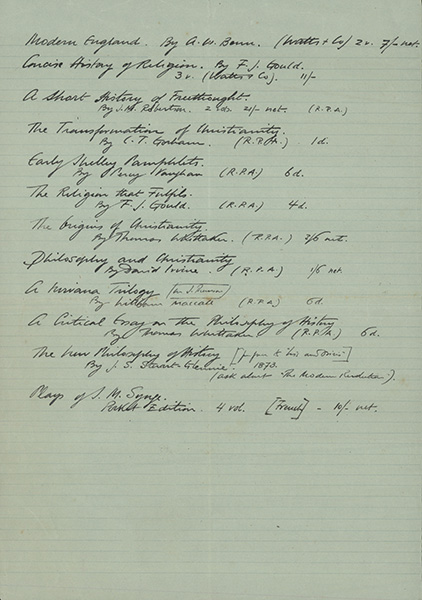 Modern England. By A. W. Benn. (Watts & Co) 2 v. 7/- net.
Concise History of Religion. By F. J. Gould.
3 v. (Watts & Co). 11/-
A Short History of Freethought.
By J. M. Robertson. 2 vols. 21/- net. (R.P.A.)
The Transformation of Christianity.
By C. T. Gorham. (R.P.A.) 1d.
Early Shelley Pamphlets.
By Percy Vaughan (R.P.A.) 6d.
The Religion that Fulfils.
By F. J. Gould. (R.P.A.) 4d.
The Origins of Christianity.
By Thomas Whittaker. (R.P.A.) 2/6 net.
Philosophy and Christianity
By David Irvine. (R.P.A.) 1/6 net.
A Nirvana Trilogy
By William Maccall (R.P.A.) 6d.
A Critical Essay on the Philosophy of History
By Thomas Whittaker (R.P.A.) 6d.
The New Philosophy of History
By J. S. Stuart-Glennie. 1873.
(ask about "The Modern Revolution").
Plays of J. M. Synge.
Pocket Edition. 4 vol. - 10/- net.